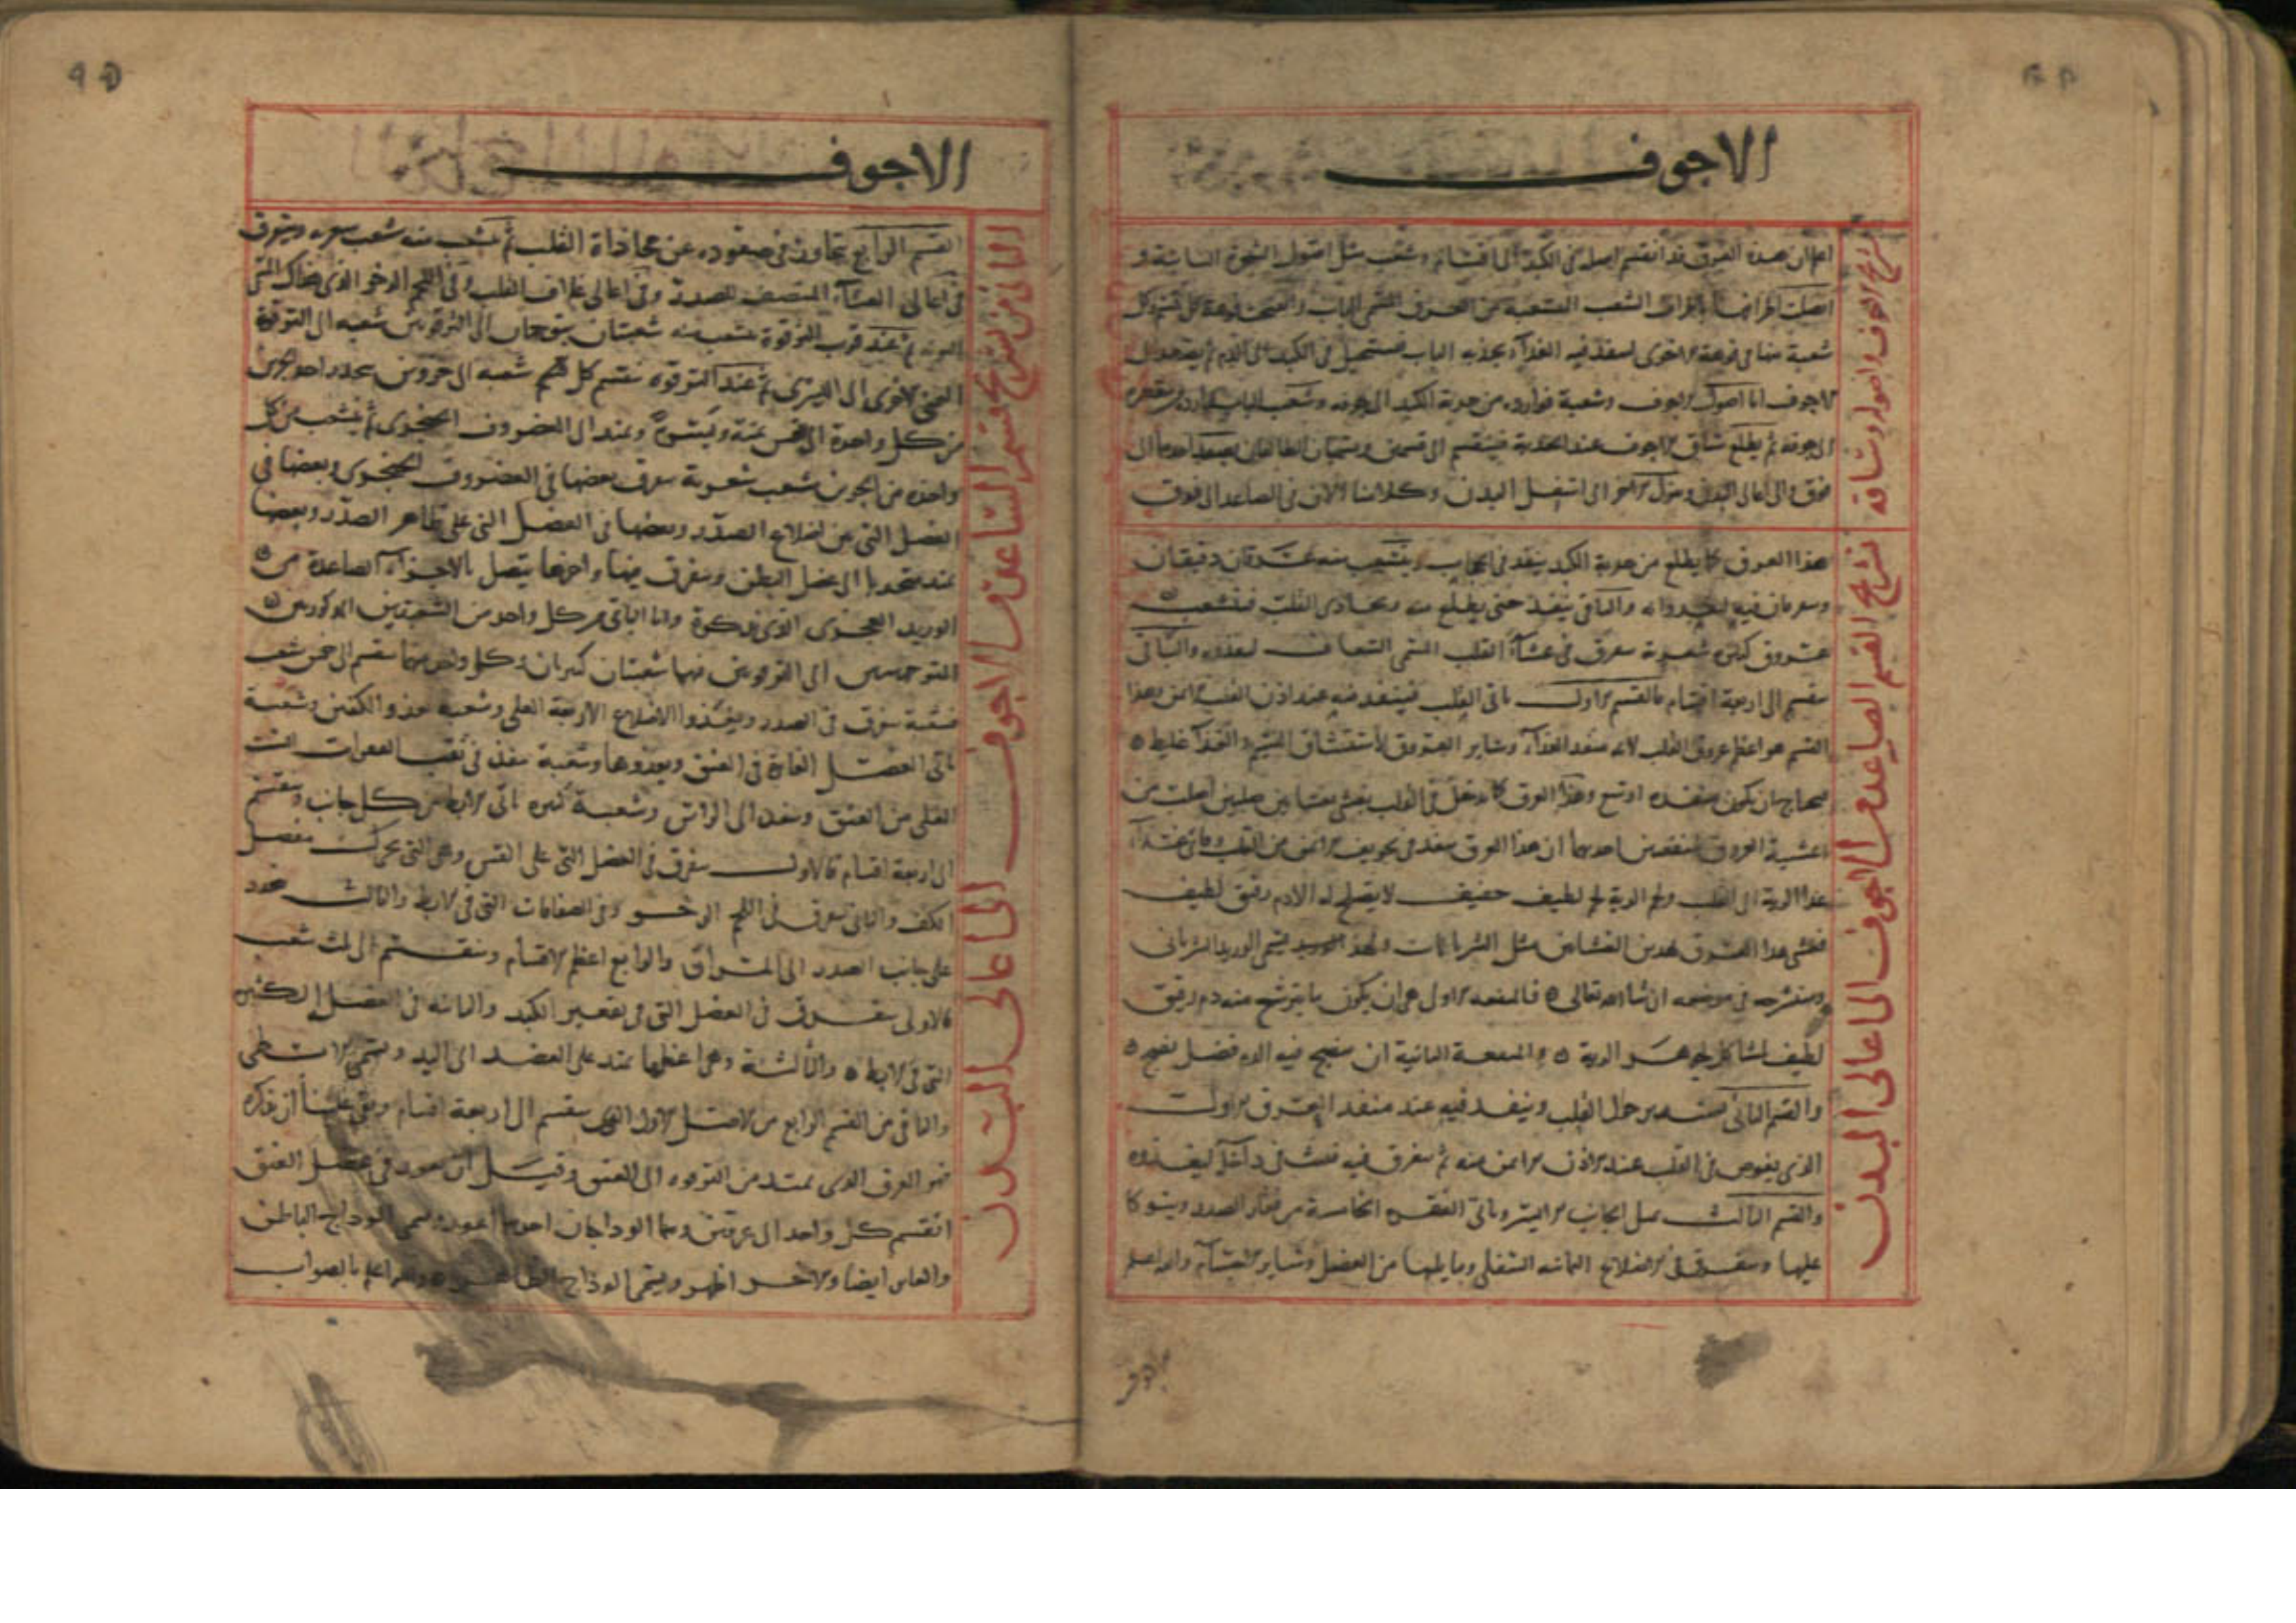 الاجوف
تشريح الاجوف واصوله وساقه
اعلم ان هذه العرق قد انقسم اصله في الكبد الى اقسام وشعب مثل اصول الشجرة النابتة و
اتصلت اطرافها باطراف الشعب المتشعبة من العرق المسمى الباب
شعبة منها في فوهة الاخرى لينفذ فيه الغذاء يجذبه الباب فيستحيل في الكبد الى الدم ثم
الاجوف اما اصول الاجوف وشعبه فواردة من حدبة الكبد الى جوفه وشعب الباب واردة من تقعيره
الى جوفه ثم يطلع ساق الاجوف عند الحدبة فينقسم الى قسمين ويسميان الطالعان يصعد احدهما الى
فوق والى اعالي البدن وينزل الاخر الى اسفل البدن وكلامنا الان في الصاعد الى فوق
تشريح القسم الصاعد من الاجوف الى اعالي البدن
هذا العرق كما يطلع من حدبة الكبد ينفذ في الحجاب ويتشعب منه عرقان دقيقان
ويتفرقان فيه ليغذواه والباقي ينفذ حتى يطلع منه ويحاذي القلب فيتشعب
عروق كثيرة شعرية يتفرق في غشاء القلب المسمى الشغاف ليغذوه والباقي
ينقسم الى اربعة اقسام فالقسم الاول ياتي القلب فينفذ فيه عند اذن القلب الايمن وهذا
القسم هو اعظم عروق القلب لانه منفذ الغذاء وساير العروق لاستنشاق النسيم والغذاء غليظ
فيحتاج ان يكون منفذه اوسع وهذا العرق كما يدخل في القلب يغشى بغشاءين صلبين اصلب من
اغشية العروق لمنفعتين احدهما ان هذا العرق ينفذ من تجويف الايمن من القلب
غذا الرية الى القلب ولحم الرية لحم لطيف خفيف لا يصلح له الا دم رقيق لطيف
فغشي هذا العرق بهذين الغشاءين مثل الشريانات ولهذا يسمى الوريد الشرياني
وسنشرحه في موضعه ان شا الله تعالى فالمنفعة الاولى هي ان يكون ما يترشح منه دم رقيق
لطيف مشاكل لجوهر الرية والمنفعة الثانية ان ينضج فيه الدم فضل نضج
والقسم الثاني يستدير حول القلب وينفذ فيه عند منفذ العرق الاول
الذي يغوص في القلب عند الاذن الايمن منه ثم يتفرق فيه في داخله ليغذوه
والقسم الثالث يميل الجانب الايسر وياتي الفقرة الخامسة من فقار الصدر ويتوكا
عليها ويتفرق في الاضلاع الثمانية السفلى وما يليها من العضل وساير الاغشاء والله اعلم
القسم
الاجوف
الباقي من تشريح قسم الصاعد من الاجوف الى اعالي البدن
القسم الرابع يتجاوز في صعوده عن محاذاة القلب ثم يتشعب منه شعب شعرية ويتفرق
في اعالي الغشاء المنصف للصدر وفي اعالي غلاف القلب وفي اللحم الرخو الذي هناك المسمى
التوثة ثم عند قرب الترقوة يتشعب منه شعبتان يتوجهان الى الترقوتين شعبه الى الترقوة
اليمنى الاخرى الى اليسرى ثم عند الترقوه ينقسم كل قسم شعبه الى جزوين ينحدر احد جزوي
من كل واحدة الى القس يمنة ويسرة ويمتد الى الغضروف الحنجري ثم يتشعب من كل
واحدة من الجزوين شعب شعرية يتفرق بعضها في الغضروف الحنجري وبعضها في
العضل التي بين اضلاع الصدر وبعضها في العضل التي على ظاهر الصدر وبعضها
يمتد منحدرا الى عضل البطن ويتفرق فيها واخرها يتصل بالاجزاء الصاعدة من
الوريد العجزي الذي نذكره واما الباقي من كل واحد من الشعبتين المذكورتين
المتوجهتين الى الترقوتين فمنها شعبتان كبيرتان وكل واحد منهما ينقسم الى خمس شعب
شعبة يتفرق في الصدر ويغذوا الاضلاع الاربعة العلى وشعبه حذو الكتفين وشعبة
ياتي العضل الغائرة في العنق ويغذوها وشعبة ينفذ في ثقب الفقرات الست
العلى من العنق وينفذ الى الراس وشعبة كبيرة ياتي الابط من كل جانب وينقسم
الى اربعة اقسام فالاول يتفرق في العضل التي على القس وهي التي تحرك مفصل
الكتف والثاني يتفرق في اللحم الرخو وفي الصفاقات التي في الابط والثالث ينحدر
على جانب الصدر الى المراق والرابع اعظم الاقسام وينقسم الى ثلث شعب
فالاولى يتفرق في العضل التي في تقعير الكبد والثانية في العضل الكثير
التي في الابط والثالثة وهي اعظمها يمتد على العضد الى اليد ويسمى الابطي
والباقي من القسم الرابع من الاصل الاول الذي ينقسم الى اربعة اقسام وبقي علينا ان نذكره
فهو العرق الذي يمتد من الترقوه الى العنق وقبل ان يغور في عضل العنق
انقسم كل واحد الى عرقين وهما الوداجان احدهما اغور ويسمى الوداج الباطن
والغاير ايضا والاخر اظهر ويسمى الوداج الظاهر والله اعلم بالصواب